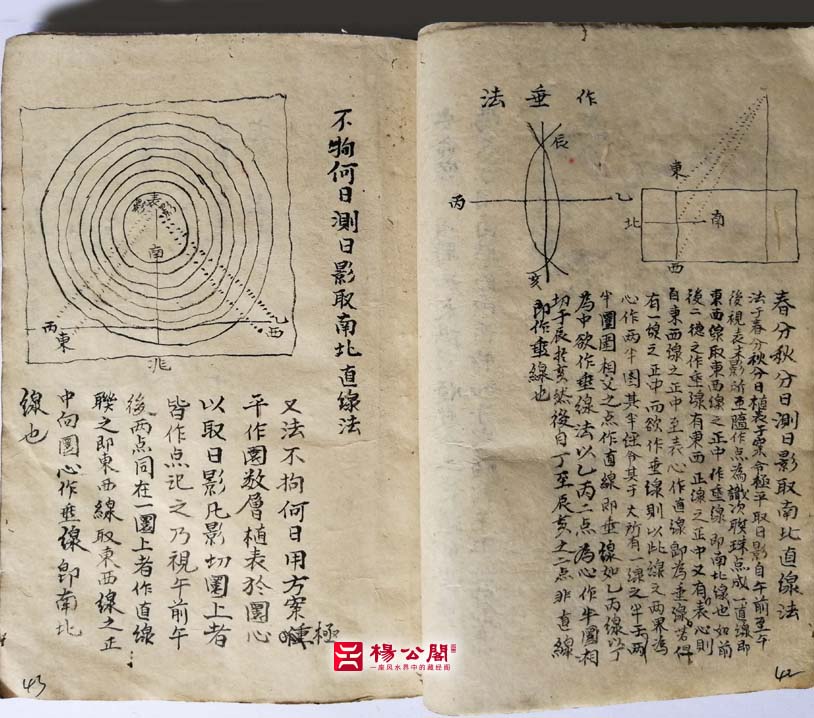 作垂法
東
南
北
西
辰
乙
丙
亥
春分秋分日測日影取南北直線法
法于春分秋分日植表于案令極平取日影自午前至午
後視表末影所至隨作点為識次聯珠点成一直線即
東西線取東西線之正中作垂線即南北線也如前
後二德之作垂線有東西正線之正中又有表心則
自東西線之正中至表心作直線即為垂線若得
有一線之正中而欲作垂線則以此線之两界為
心作两半圈其半徑令其于大所有一線之半与两
半圈圈相交之点作直線即垂線如乙丙線以丁
為中欲作垂線法以乙丙二点為心作半圈相
切于辰於亥然後自丁至辰亥之二点非直線
即作垂線也
42
不拘何日測日影取南北直線法
表
南
乙
西
丙
東
北
又法不拘何日用方案極
平作圈数層植表於圈心
以取日影凡影切圈上者
皆作点記之乃視午前午
後两点同在一圈上者作直線
聯之即東西線取東西線之正
中向圓心作垂線即南北
線也
43
楊公閣
一座风水界中的藏经阁